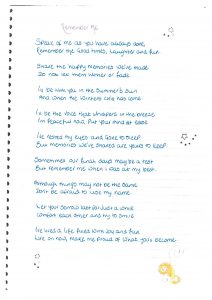 Remember Me
Speak of me as you have always done,
Remember the Good times, Laughter and fun.
Share the happy memories we've made
Do not let them wither or fade
I'll be with you in the Summer's Sun
And when the Winters chill has come
I'll be the voice that whispers in the breeze
I'm peaceful now, Put your mind at ease
I've rested my eyes and Gone to sleep
But memories we've shared are yours to keep
Sometimes our final days may be a test
But remember me when I was at my best
Although things may not be the same
Don't be afraid to use my name
Let your sorrow last for Just a while
Comfort each other and try to Smile
I've lived a life filled with Joy and fun
Live on now, make me Proud of what you'll become